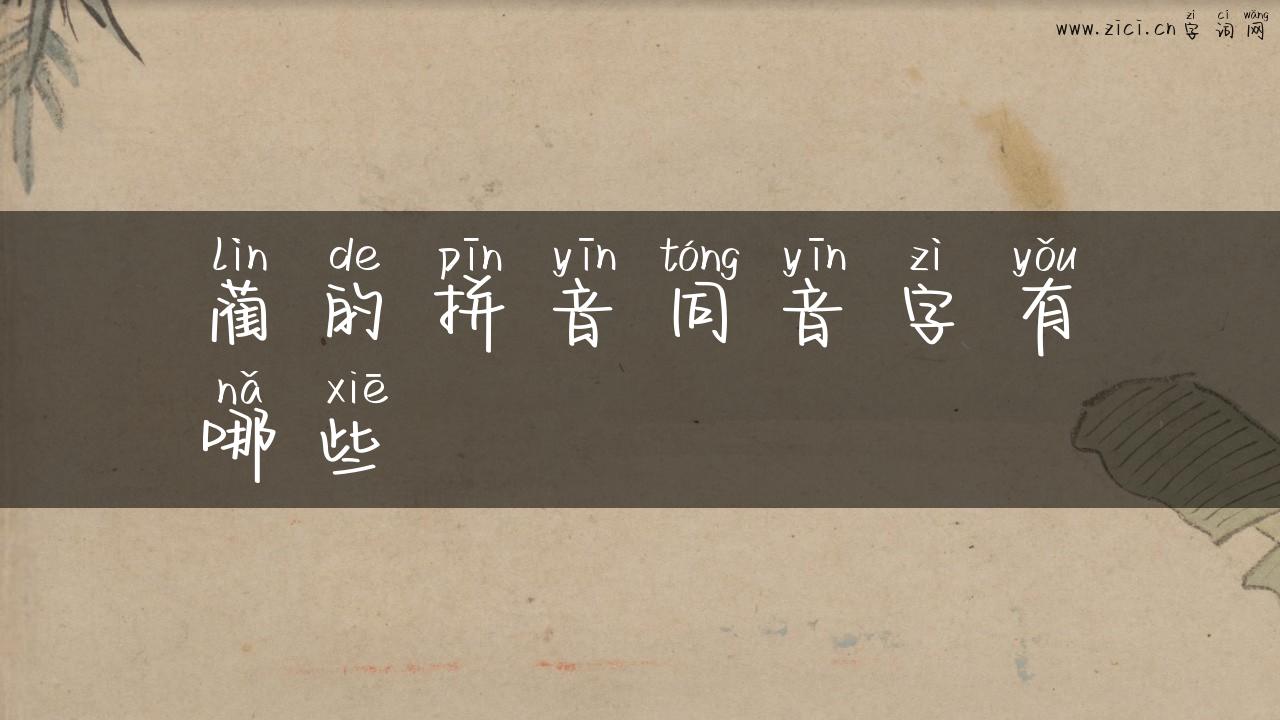 zì cí wǎng
www.zici.cn 字词网
lìn de pīn yīn tóng yīn zì yǒu
蔺的拼音同音字有
nǎ xiē
哪些